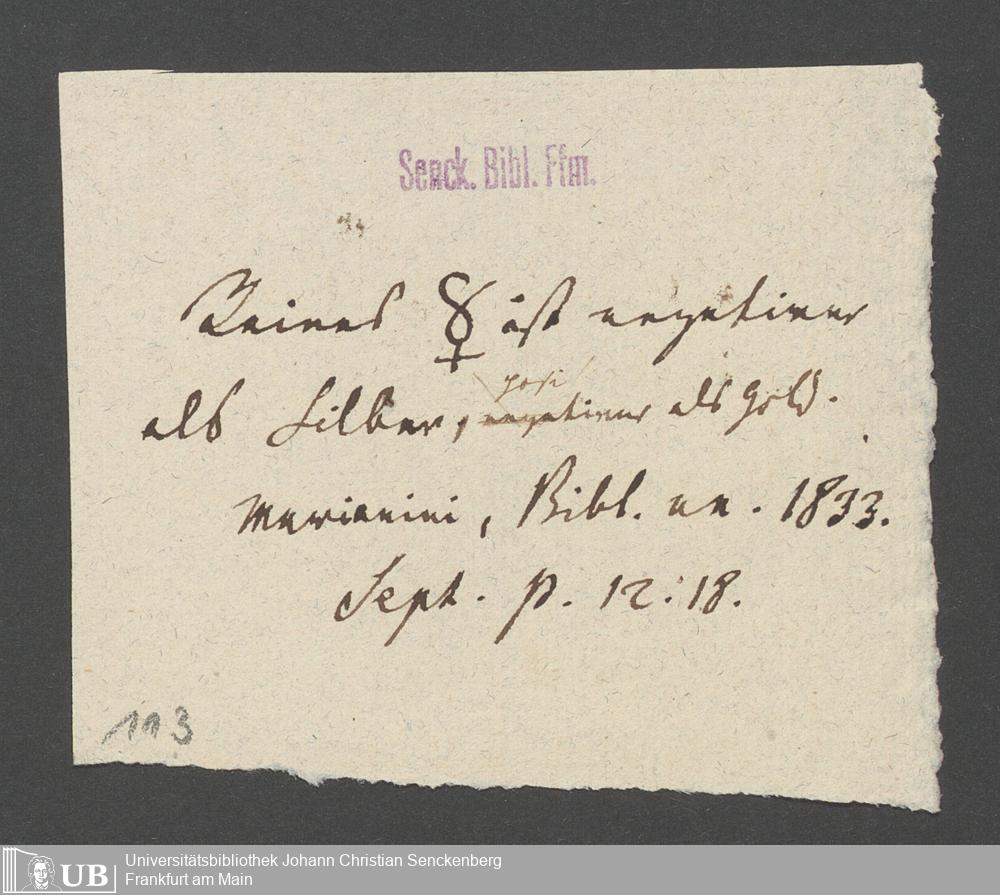 Senck. Bibl. Ffm.
Reines ☿ ist negativer
als Silber, negativer als Gold.
posi
Marianini, Bibl. un. 1833.
Sept. p. 12. 18.
113
UB
Universitätsbibliothek Johann Christian Senckenberg
Frankfurt am Main